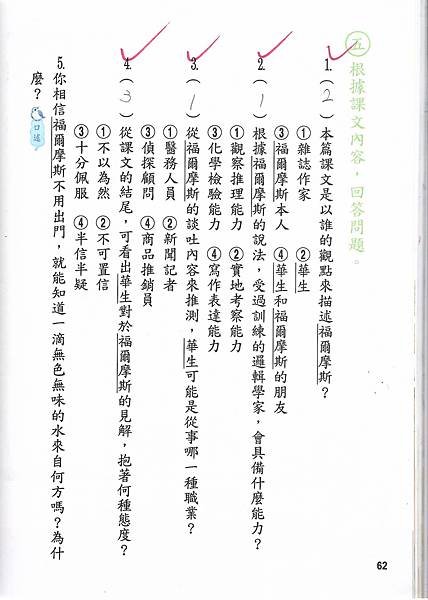 五 根據課文內容，回答問題。
1.（2）本篇課文是以誰的觀點來描述福爾摩斯？
①雜誌作家 ②華生
③福爾摩斯本人 ④華生和福爾摩斯的朋友
2.（1）根據福爾摩斯的說法，受過訓練的邏輯學家，會具備什麼能力？
①觀察推理能力 ②實地考察能力
③化學檢驗能力 ④寫作表達能力
3.（1）從福爾摩斯的談吐內容來推測，華生可能是從事哪一種職業？
①醫務人員 ②新聞記者
③偵探顧問 ④商品推銷員
4.（3）從課文的結尾，可看出華生對於福爾摩斯的見解，抱著何種態度？
①不以為然 ②不可置信
③十分佩服 ④半信半疑
5.你相信福爾摩斯不用出門，就能知道一滴無色無味的水來自何方嗎？為什
麼？ 口述
62